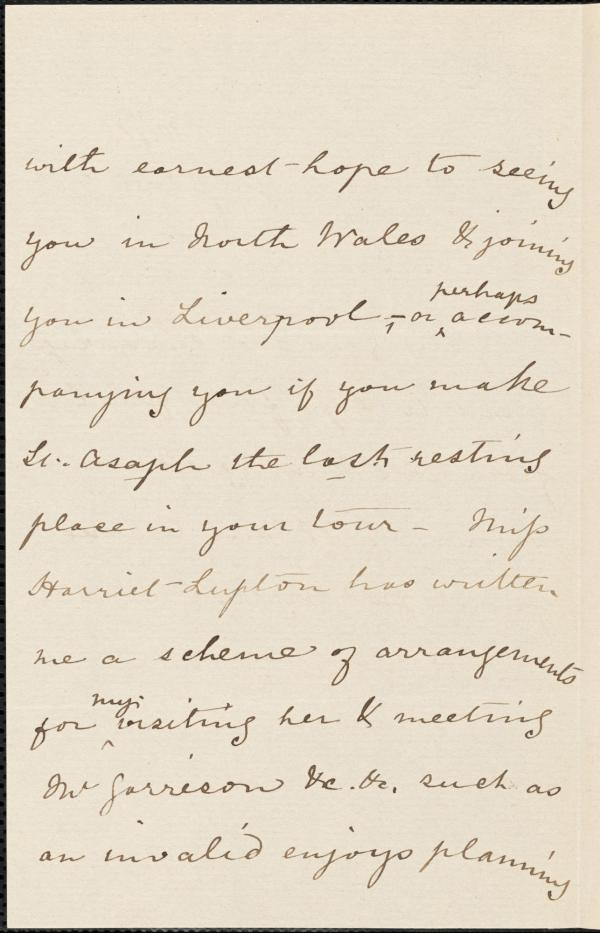 with earnest hope to seeing
you in North Wales & joining
you in Liverpool - or perhaps accom-
panying you if you make
St. Asaph the last resting
place in your tour - Miss
Harriet Lupton has written
me a scheme of arrangements
for my visiting her & meeting
Mr Garrison &c. &c. such as
an invalid enjoys planning